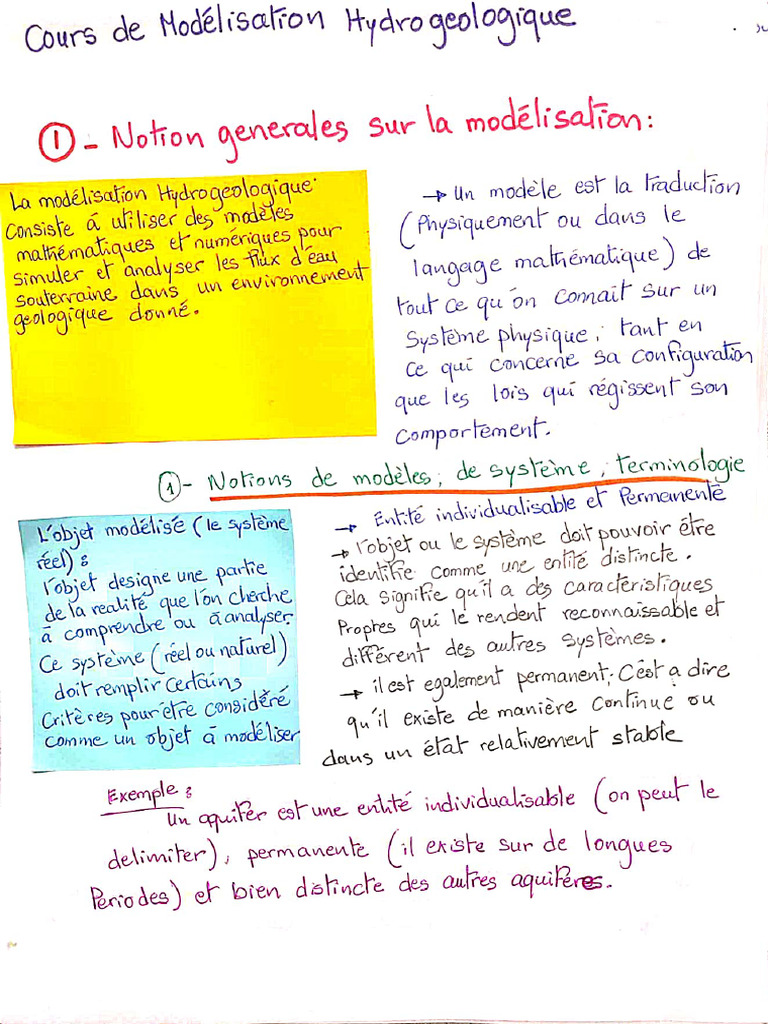 Cours de Modélisation Hydrogeologique
① - Notion generales sur la modélisation :
La modélisation Hydrogeologique
Consiste á utiliser des modèles
mathématiques et numériques pour
simuler et analyser les flux d'eau
souterraine dans un environnement
geologique donné.
→ Un modèle est la traduction
(Physiquement ou dans le
langage mathématique) de
tout ce qu'on connait sur un
système physique, tant en
ce qui concerne sa configuration
que les lois qui régissent son
comportement.
① - Notions de modèles, de système, terminologie
L'objet modélisé (le système
réel) :
l'objet designe une partie
de la realité que l'on cherche
à comprendre ou à analyser.
Ce système (réel ou naturel)
doit remplir certains
Critères pour être considéré
comme un objet à modéliser
→ Entité individualisable et Permanente
→ l'objet ou le système doit pouvoir être
identifie comme une entité distincte.
Cela signifie qu'il a des caractéristiques
Propres qui le rendent reconnaissable et
différent des autres systèmes.
→ il est egalement permanent, C'est a dire
qu'il existe de manière continue ou
dans un état relativement stable
Exemple :
Un aquifer est une entité individualisable (on peut le
delimiter), permanente (il existe sur de longues
Periodes) et bien distincte des autres aquiferes.